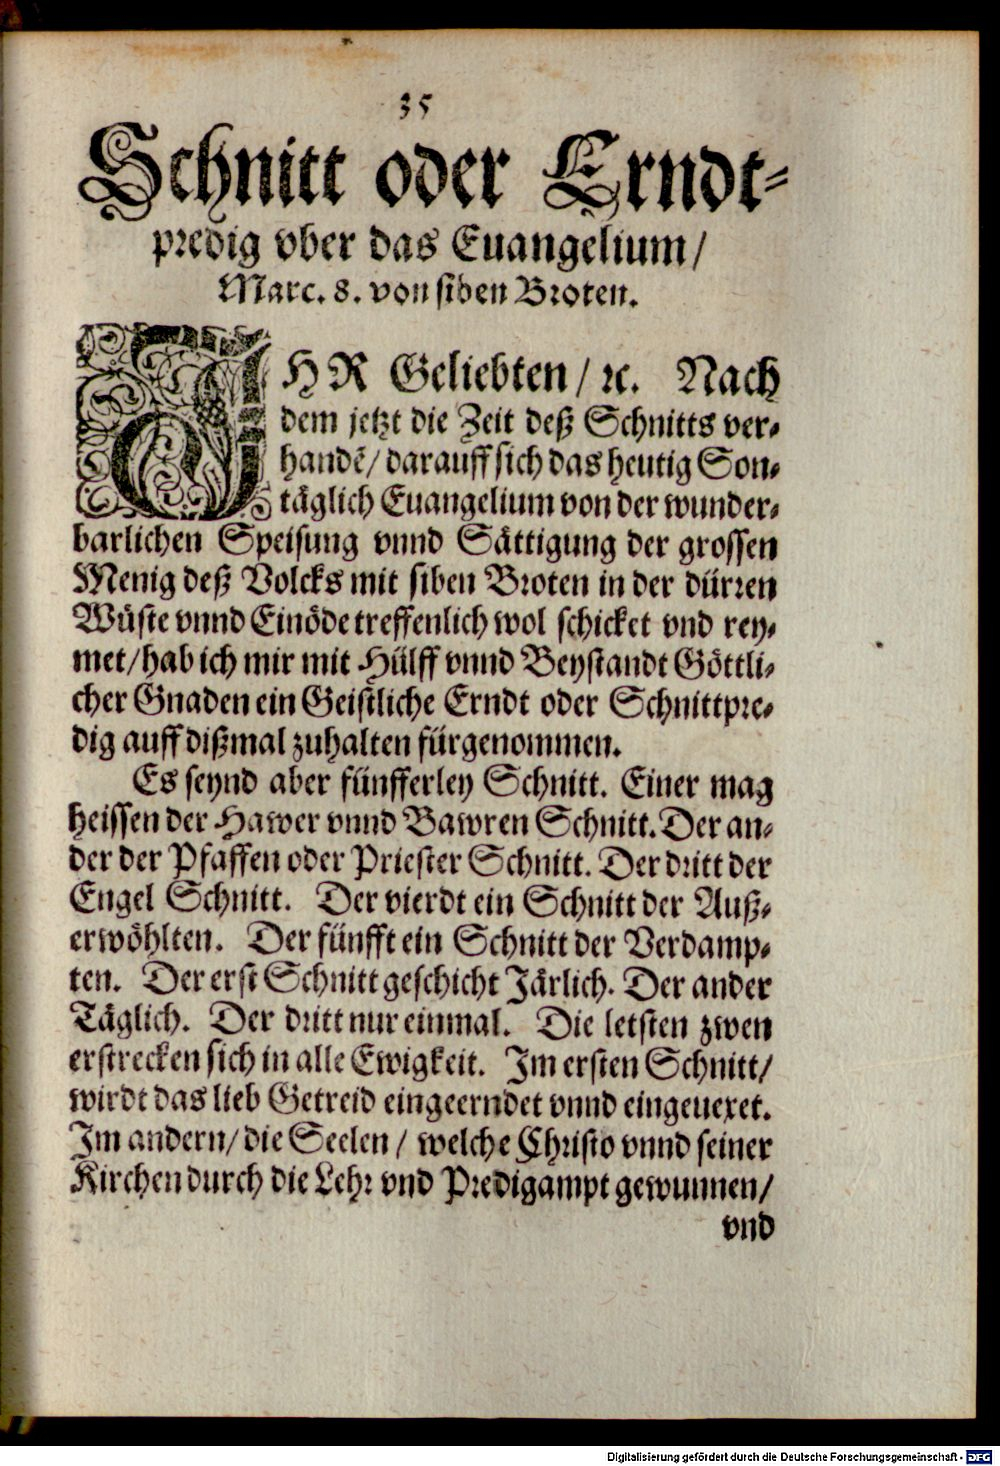 35
Schnitt oder Erndt-
predig vber das Euangelium/
Marc. 8. von siben Broten.
IHR Geliebten/ ꝛc. Nach
dem jetzt die Zeit deß Schnitts ver-
handẽ/ darauff sich das heutig Son-
täglich Euangelium von der wunder-
barlichen Speisung vnnd Sättigung der grossen
Menig deß Volcks mit siben Broten in der dürren
Wüste vnnd Einöde treffenlich wol schicket vnd rey-
met/ hab ich mir mit Hülff vnnd Beystandt Göttli-
cher Gnaden ein Geistliche Erndt oder Schnittpre-
dig auff dißmal zuhalten fürgenommen.
Es seynd aber fünfferley Schnitt. Einer mag
heissen der Hawer vnnd Bawren Schnitt. Der an-
der der Pfaffen oder Priester Schnitt. Der dritt der
Engel Schnitt. Der vierdt ein Schnitt der Auß-
erwöhlten. Der fünfft ein Schnitt der Verdamp-
ten. Der erst Schnitt geschicht Järlich. Der ander
Täglich. Der dritt nur einmal. Die letsten zwen
erstrecken sich in alle Ewigkeit. Im ersten Schnitt/
wirdt das lieb Getreid eingeerndet vnnd eingeuexet.
Im andern/ die Seelen/ welche Christo vnnd seiner
Kirchen durch die Lehr vnd Predigampt gewunnen/
vnd
Digitalisierung gefördert durch die Deutsche Forschungsgemeinschaft - DFG